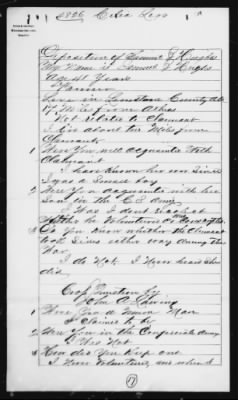 5826 Celia Legg
Deposition of Samuel D Hughs
My Name is Samuel D Hughs
Age 41 Years
Farmer
Live in Limstone County Ala
17 Miles from Athens
Not relative to Claimant
I live about two Miles from
Claimant
1 Were You well acquainte with
Claimant
I have Known her ever Since
I was a Small boy
2 Were You acquainte with her
Son in the C S Army
I Was I dont recollect
whether he Volunteered or
3 Do You Know whether the Claimant
took Sides either way during the
War
I do Not. I Never heard She
did
Cross Question by
John A
1 Were You a Union Man
I Claimed to be
2 Were You in the Confederate Army
I Was Not
3 How did You Keep out
I Never Volunteered, and when I
17